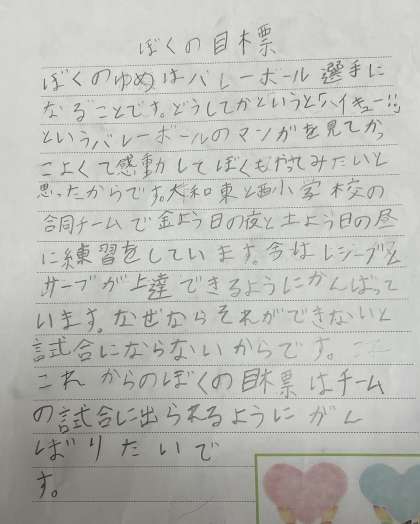 ぼくの目標
ぼくのゆめはバレーボール選手に
なることです。どうしてかというと「ハイキュー!!」
というバレーボールのマンガを見てかっ
こよくて感動してぼくもやってみたいと
思ったからです。大和東と西小学校の
合同チームで金よう日の夜と土よう日の昼
に練習をしています。今はレシーブと
サーブが上達できるようにがんばって
います。なぜならそれができないと
試合にならないからです。
これからのぼくの目標はチーム
の試合に出られるようにがん
ばりたいで
す。